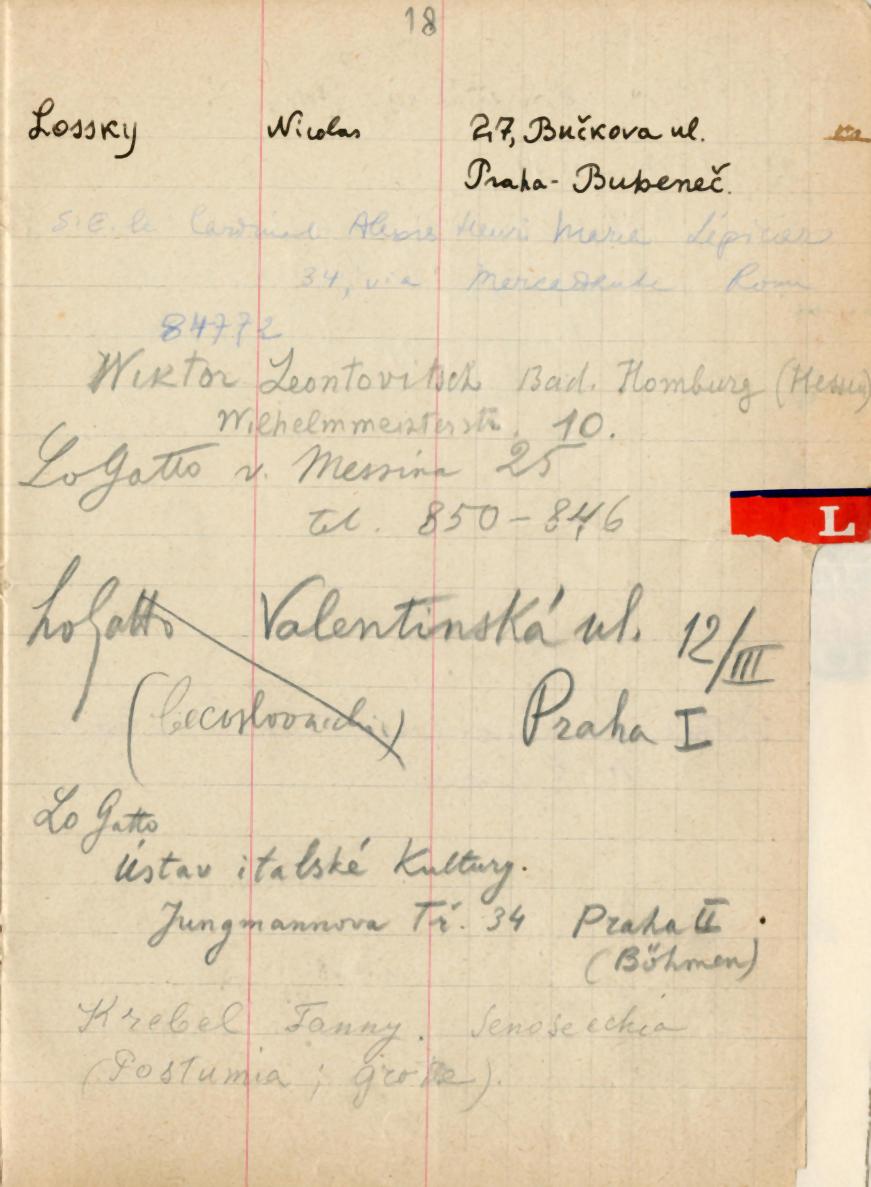 18
Lossky Nicolas 27, Bučkova ul.
Praha - Bubeneč.
S. E. le Cardinal Alexis Henri Marie Lépicier
34, via Mercadante Roma
84772
Wiktor Leontovitsch Bad. Homburg (Hessen)
Wilhelmmeisterstr. 10.
Lo Gatto v. Messina 25
tel. 850-846
Lo Gatto Valentinská ul. 12/III
(Cecoslovacchia) Praha I
Lo Gatto
Ústav italské Kultury.
Jungmannova Tř. 34 Praha II.
(Böhmen)
L
Krebel Fanny. Senosecchia
(Postumia; grotte).